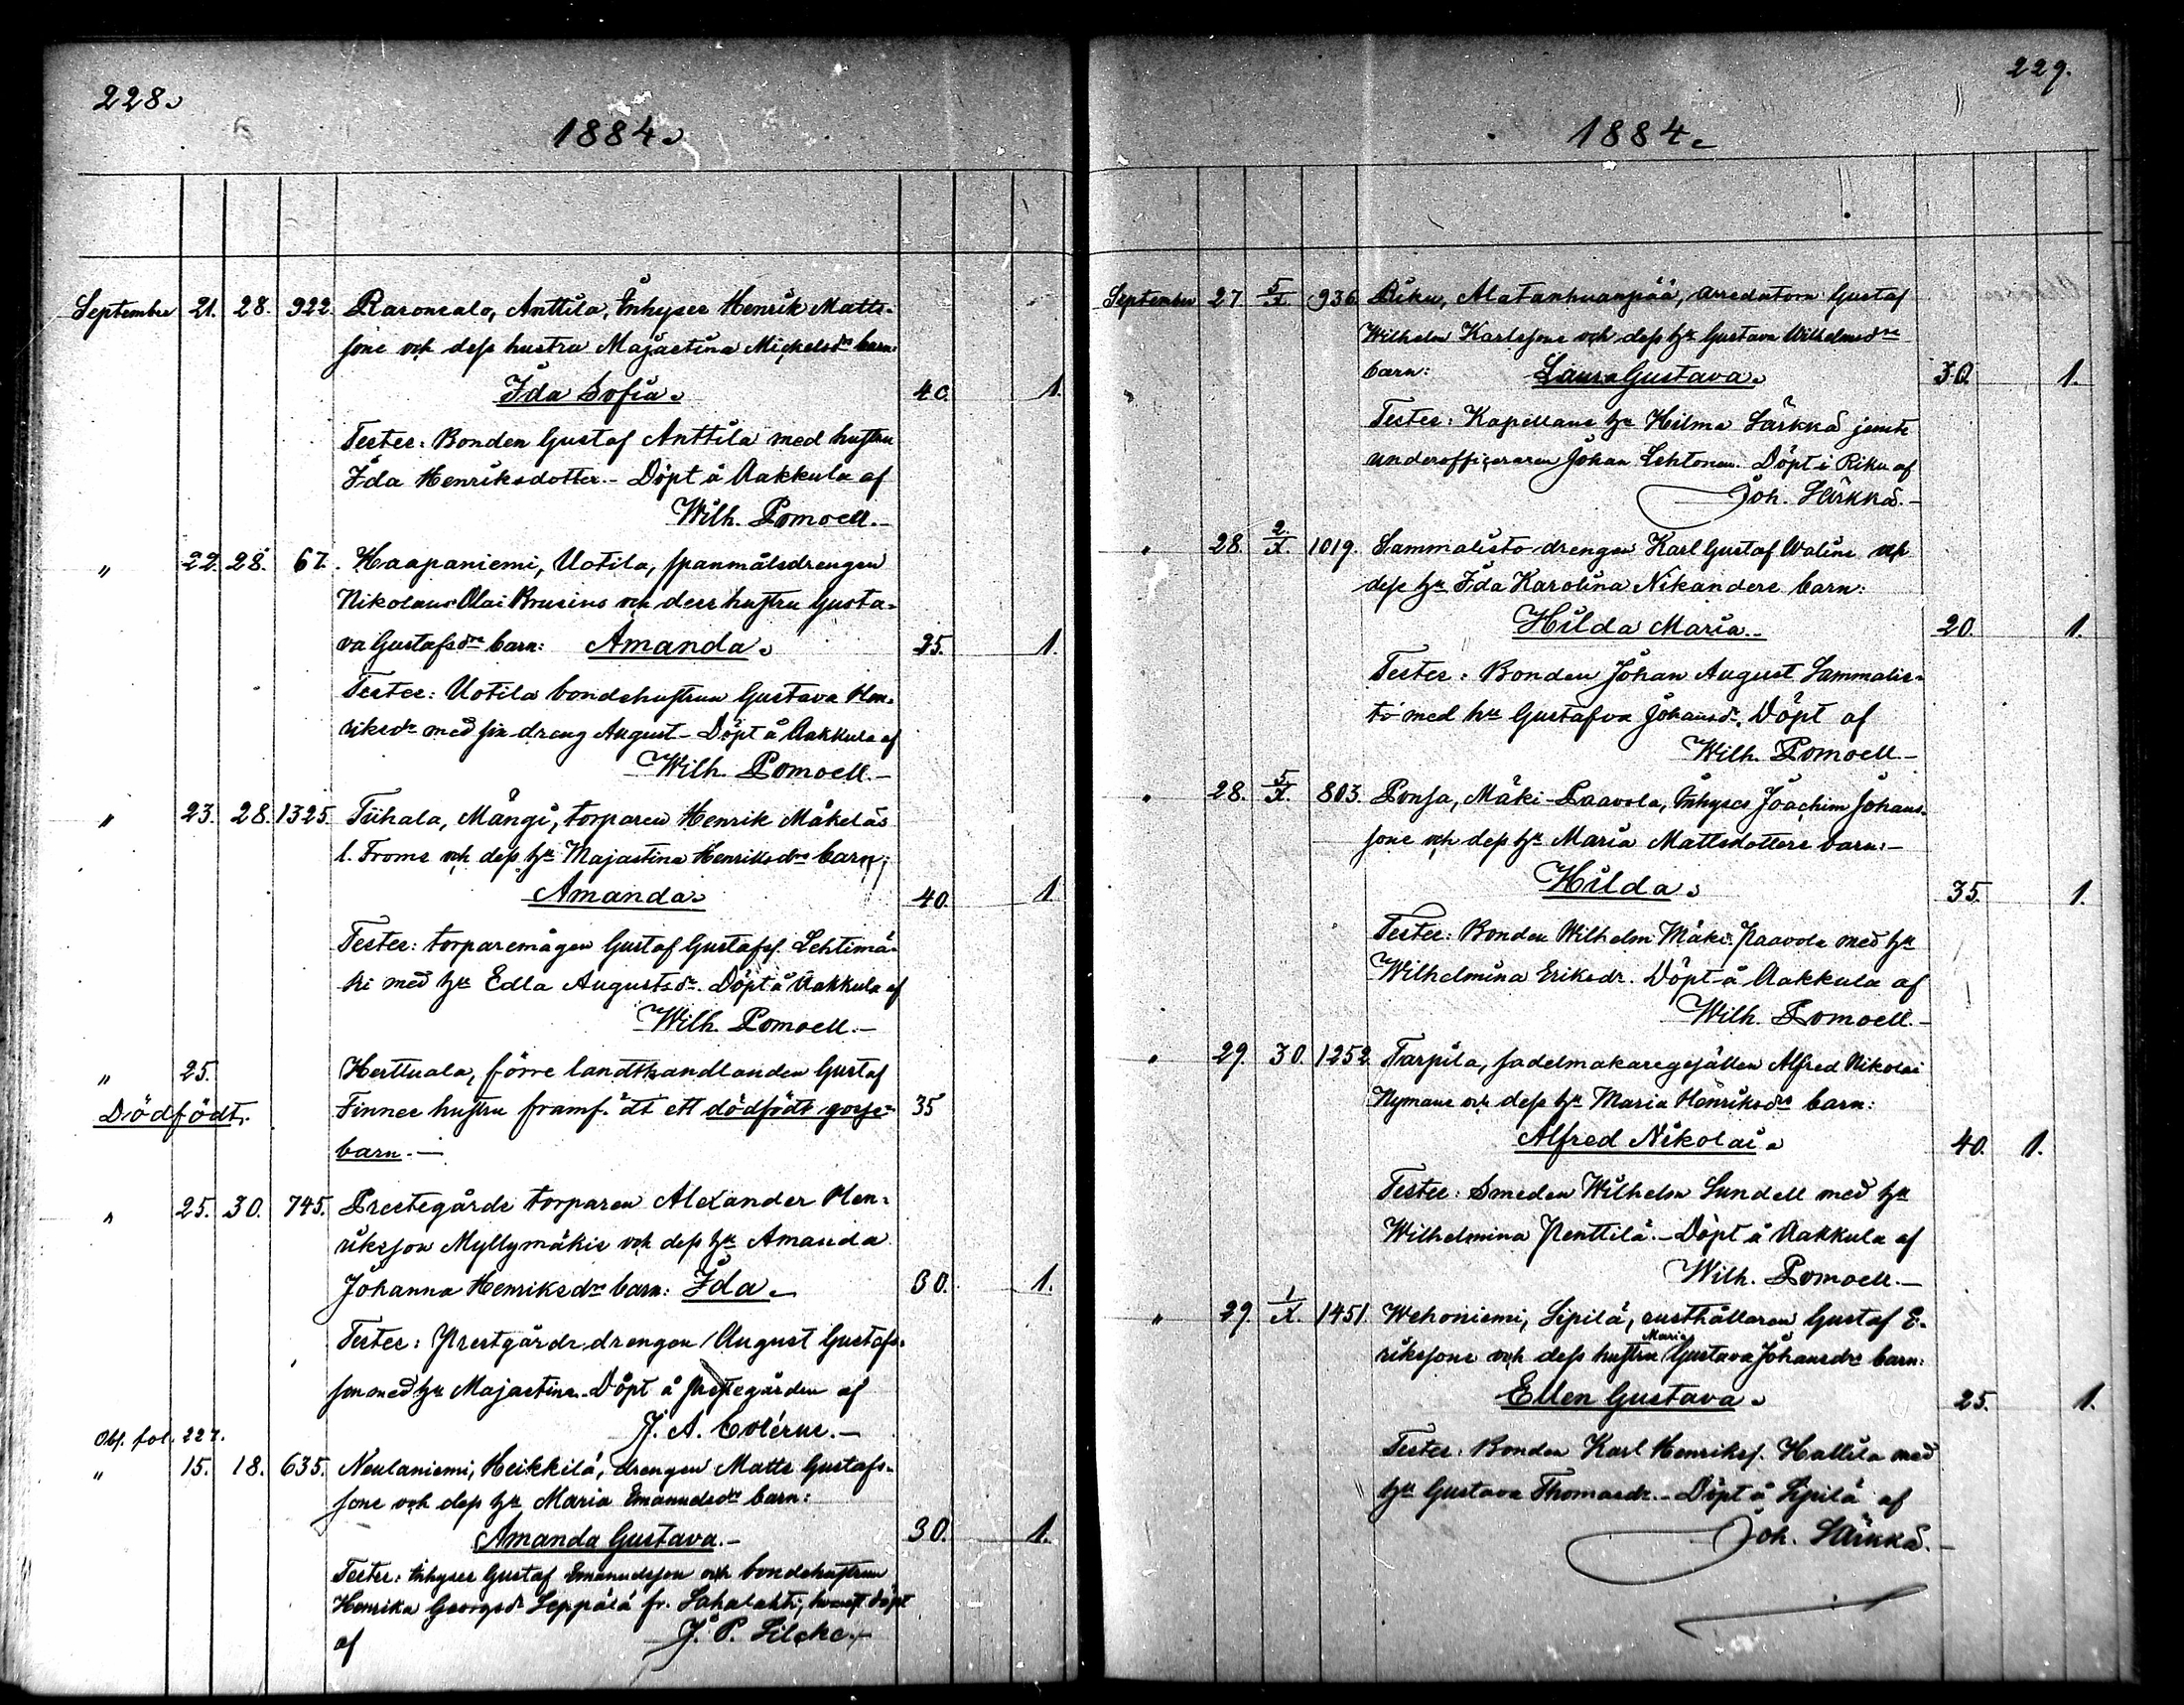 228.
1884.
September 21. 28. 922. Rasonsalo, Anttila, Inhyses Henrik Matts-
sons och dess hustru Majastina Mickelsdrs barn:
Ida Sofia. 40. 1.
Testes: Bonden Gustaf Anttila med hustru
Ida Henriksdotter. - Döpt å Aakkula af
Wilh. Pomoell. -
" 22. 28. 67. Haapaniemi, Uotila, spanmålsdrengen
Nikolaus Olai Brusius och dess hustru Gusta-
va Gustafsdrs barn: Amanda. 25. 1.
Testes: Uotila bondehustrun Gustava Hen-
riksdr med sin dreng August - Döpt å Aakkula af
Wilh. Pomoell. -
" 23. 28. 1325. Tiihala, Mångi, torparen Henrik Mäkeläs
l. Froms och dess hu Majastina Henriksdrs barn:
Amanda. 40. 1.
Testes: torparemågen Gustaf Gustafss. Lehtimä-
ki med hu Edla Augustsdr. Döpt å Aakkula af
Wilh. Pomoell. -
" 25. Herttuala, förre landthandlanden Gustaf
Dödfödt. Finnes hustru framf. ett dödfödt gosse- 35
barn. -
" 25. 30. 745. Prestegårds torparen Alexander Hen-
riksson Myllymäkis och dess hu Amanda
Johanna Henriksdrs barn: Ida. 30. 1.
Testes: Prestgårdsdrengen August Gustafs-
son med hu Majastina. Döpt å prestegården af
J. A. Colérus. -
Obs. fol. 227.
" 15. 18. 635. Neulaniemi, Heikkilä, drengen Matts Gustafs-
sons och dess hu Maria Emanuelsdrs barn:
Amanda Gustava. - 30. 1.
Testes: Inhyses Gustaf Emanuelsson och bondehustrun
Henrika Georgsdr Leppälä fr. Sahalahti, hvarest döpt
af J. P. Lilcke. -
229.
1884.
September 27. 5/X. 936. Riku, Alatanhuanpää, arrendatorn Gustaf
Wilhelm Karlssons och dess hu Gustava Wilhelmsdrs
barn: Laura Gustava. 30. 1.
Testes: Kapellans hu Hilma Särkkä jemte
underofficeraren Johan Lehtonen. Döpt i Riku af
Joh. Särkkä. -
" 28. 2/X. 1019. Sammalisto drengen Karl Gustaf Walins och
dess hu Ida Karolina Nikanders barn:
Hilda Maria. 20. 1.
Testes: Bonden Johan August Sammalis-
to med hu Gustafva Johansdr. Döpt af
Wilh. Pomoell. -
" 28. 5/X. 803. Ponsa, Mäki-Paavola, Inhyses Joachim Johans-
sons och dess hu Maria Mattsdotters barn: -
Hilda. 35. 1.
Testes: Bonden Wilhelm Mäki-Paavola med hu
Wilhelmina Eriksdr. Döpt å Aakkula af
Wilh. Pomoell. -
" 29. 30. 1252. Tarpila, sadelmakaregesällen Alfred Nikolai
Nymans och dess hu Maria Henriksdrs barn:
Alfred Nikolai. 40. 1.
Testes: Smeden Wilhelm Sundell med hu
Wilhelmina Penttilä. - Döpt å Aakkula af
Wilh. Pomoell. -
" 29. 1/X. 1451. Wehoniemi, Sipilä, rusthållaren Gustaf E-
rikssons och dess hustru Maria Gustava Johansdrs barn:
Ellen Gustava. 25. 1.
Testes: Bonden Karl Henrikss. Hallila med
hu Gustava Thomasdr. - Döpt å Sipilä af
Joh. Särkkä. -